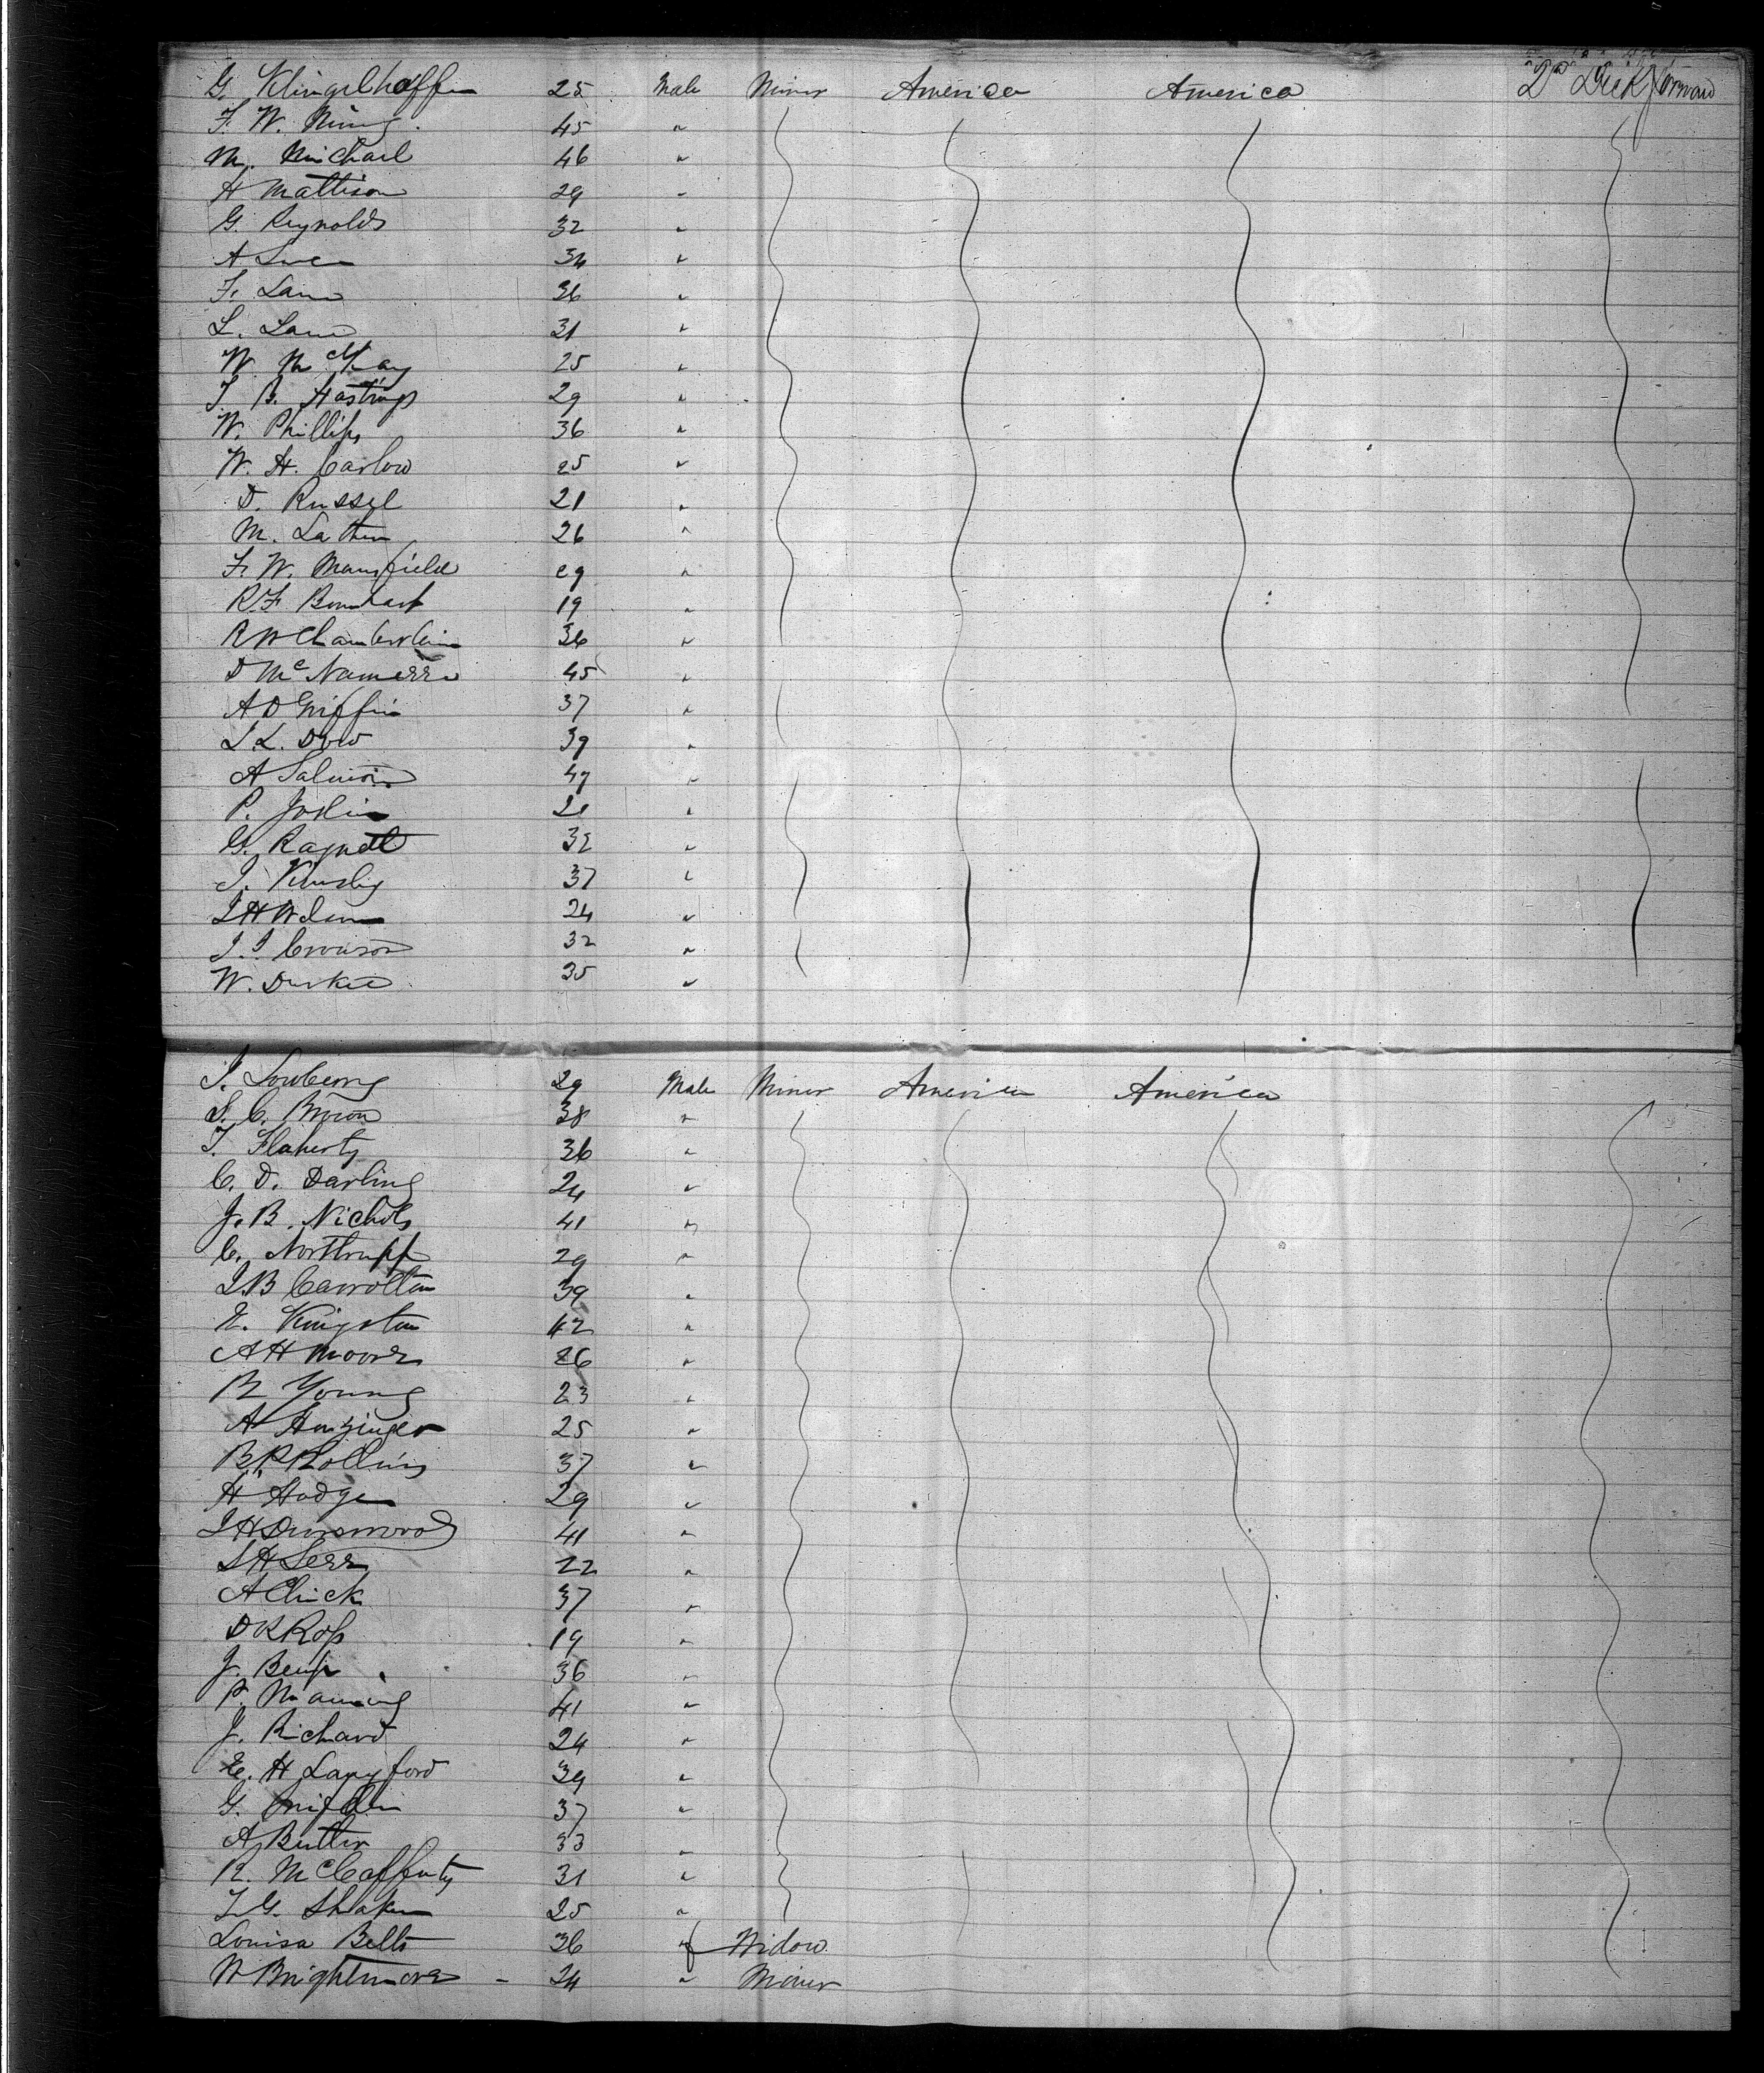 G. Klingelhoffer 25 Male Miner America America 2nd Deck Forward
F. W. 45 "
M. 46 "
H Mattison 29 "
G. Reynolds 32 "
A 34 "
F. Lane 36 "
L. Lane 31 "
W. McKay 25 "
T B. Hastings 29 "
W. Phillips 36 "
W. H. Carlow 25 "
D. Russel 21 "
M. Lathen 26 "
F. W. Mansfield 29 "
R. F 19 "
R W Chamberlain 36 "
D McNamerra 45 "
A D Griffin 37 "
L. Dow 39 "
A Salmon 47 "
P. Joslin 21 "
G. 32 "
J. 37 "
J H 24 "
J. J. 32 "
W. Durkee 35 "
J. 29 Male Miner America America
S. C. Brown 38 "
T. Flaherty 36 "
C. D. Darling 24 "
J. B. Nichols 41 "
C. Northrupp 29 "
J. B Carrolton 39 "
E. Kingston 42 "
A H Moores 26 "
B Young 23 "
A 25 "
B. P. Rollins 37 "
H Hodge 29 "
J H 41 "
S H 22 "
A Chick 37 "
D B Ross 19 "
J. 36 "
P. Manning 41 "
J. Richard 24 "
E. H Langford 39 "
G. 37 "
A Butler 33 "
R. McCafferty 31 "
T. G. 25 "
Louisa Betts 36 f Widow
W Brightmore - 24 " Miner